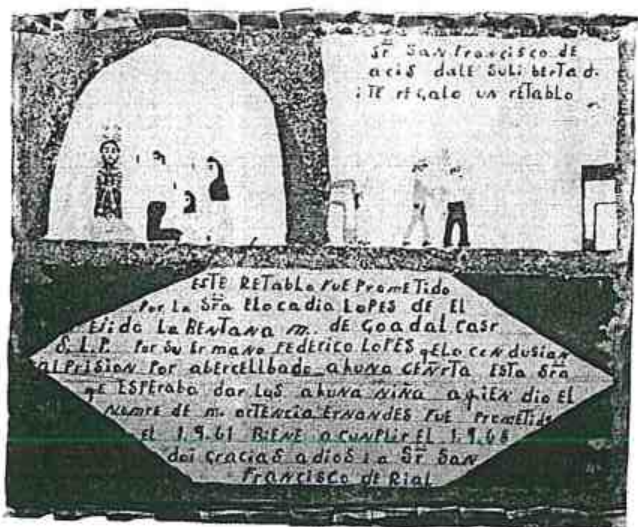 Sr San Francisco DE
acis dale SuLibertad.
iTE regalo un RETablo
ESTE RETablo FUE PromETido
Por La Sra ELocadia LOPES DE EL
Ejido La BENTana m. de GoadalCasr
S.L.P. Por Su Er mano FEDErico LOPES qELo cenDUSian
alPrision Por abercELLbado ahuna CENrta ESTa Sra
qE ESPEraba dar Lus ahuna niña aqiEN dio El
Nomre DE m. ortencia Ernandes FUE PromETido
el 1.9.61 BiENE a cunPlir El 1.9.68
doi graciaS adioS i a Sr San
Francisco de Rial